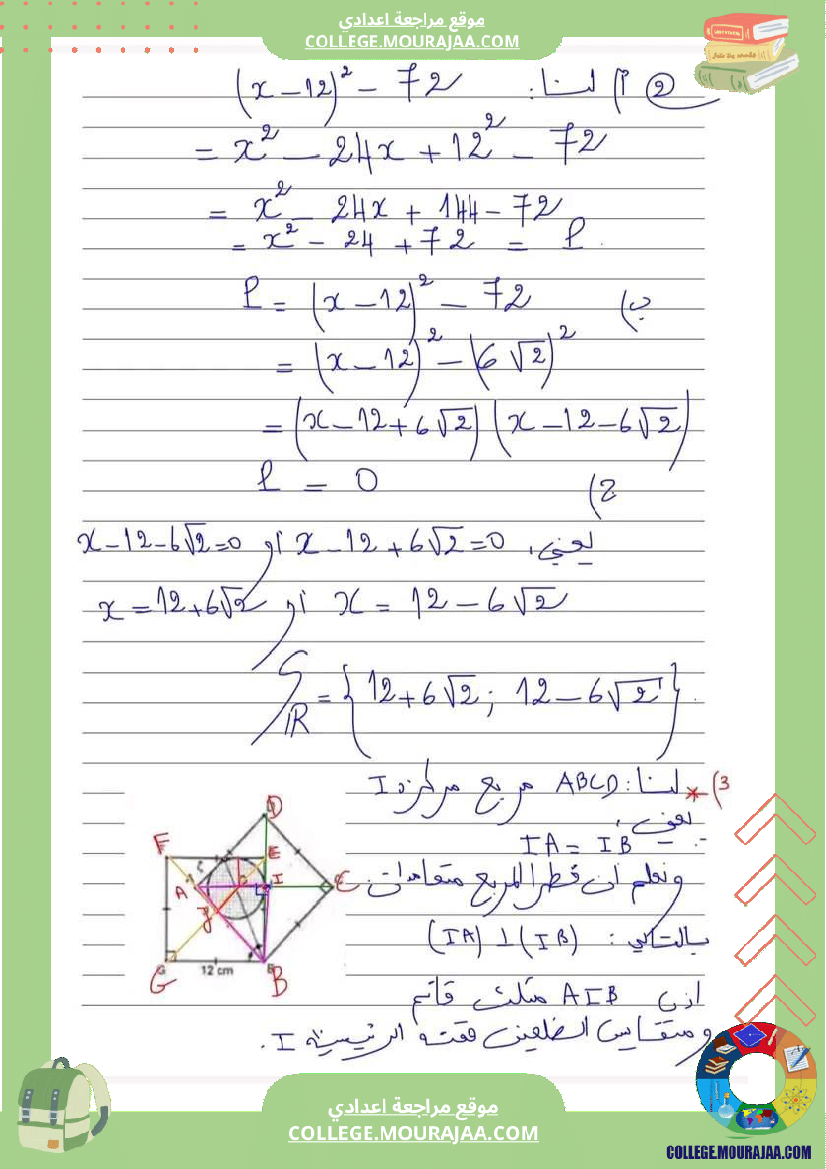 موقع مراجعة اعدادي
COLLEGE.MOURAJAA.COM
② أ) لنا: (x − 12)² − 72
= x² − 24x + 12² − 72
= x² − 24x + 144 − 72
= x² − 24 + 72 = P.
ب) P = (x − 12)² − 72
= (x − 12)² − (6√2)²
= (x − 12 + 6√2) (x − 12 − 6√2)
ج) P = 0
يعني، x − 12 + 6√2 = 0 أو x − 12 − 6√2 = 0
x = 12 − 6√2 أو x = 12 + 6√2
S_IR = {12 + 6√2 ; 12 − 6√2}.
3) * لنا: ABCD مربع مركزه I
يعني،
IA = IB
ونعلم ان قطرا المربع متعامدان.
بالتالي: (IA) ⊥ (IB)
اذن AIB مثلث قائم
ومتقايس الضلعين قمته الرئيسية I.
D
F
E
A
I
C
J
G
12 cm
B
موقع مراجعة اعدادي
COLLEGE.MOURAJAA.COM
COLLEGE.MOURAJAA.COM